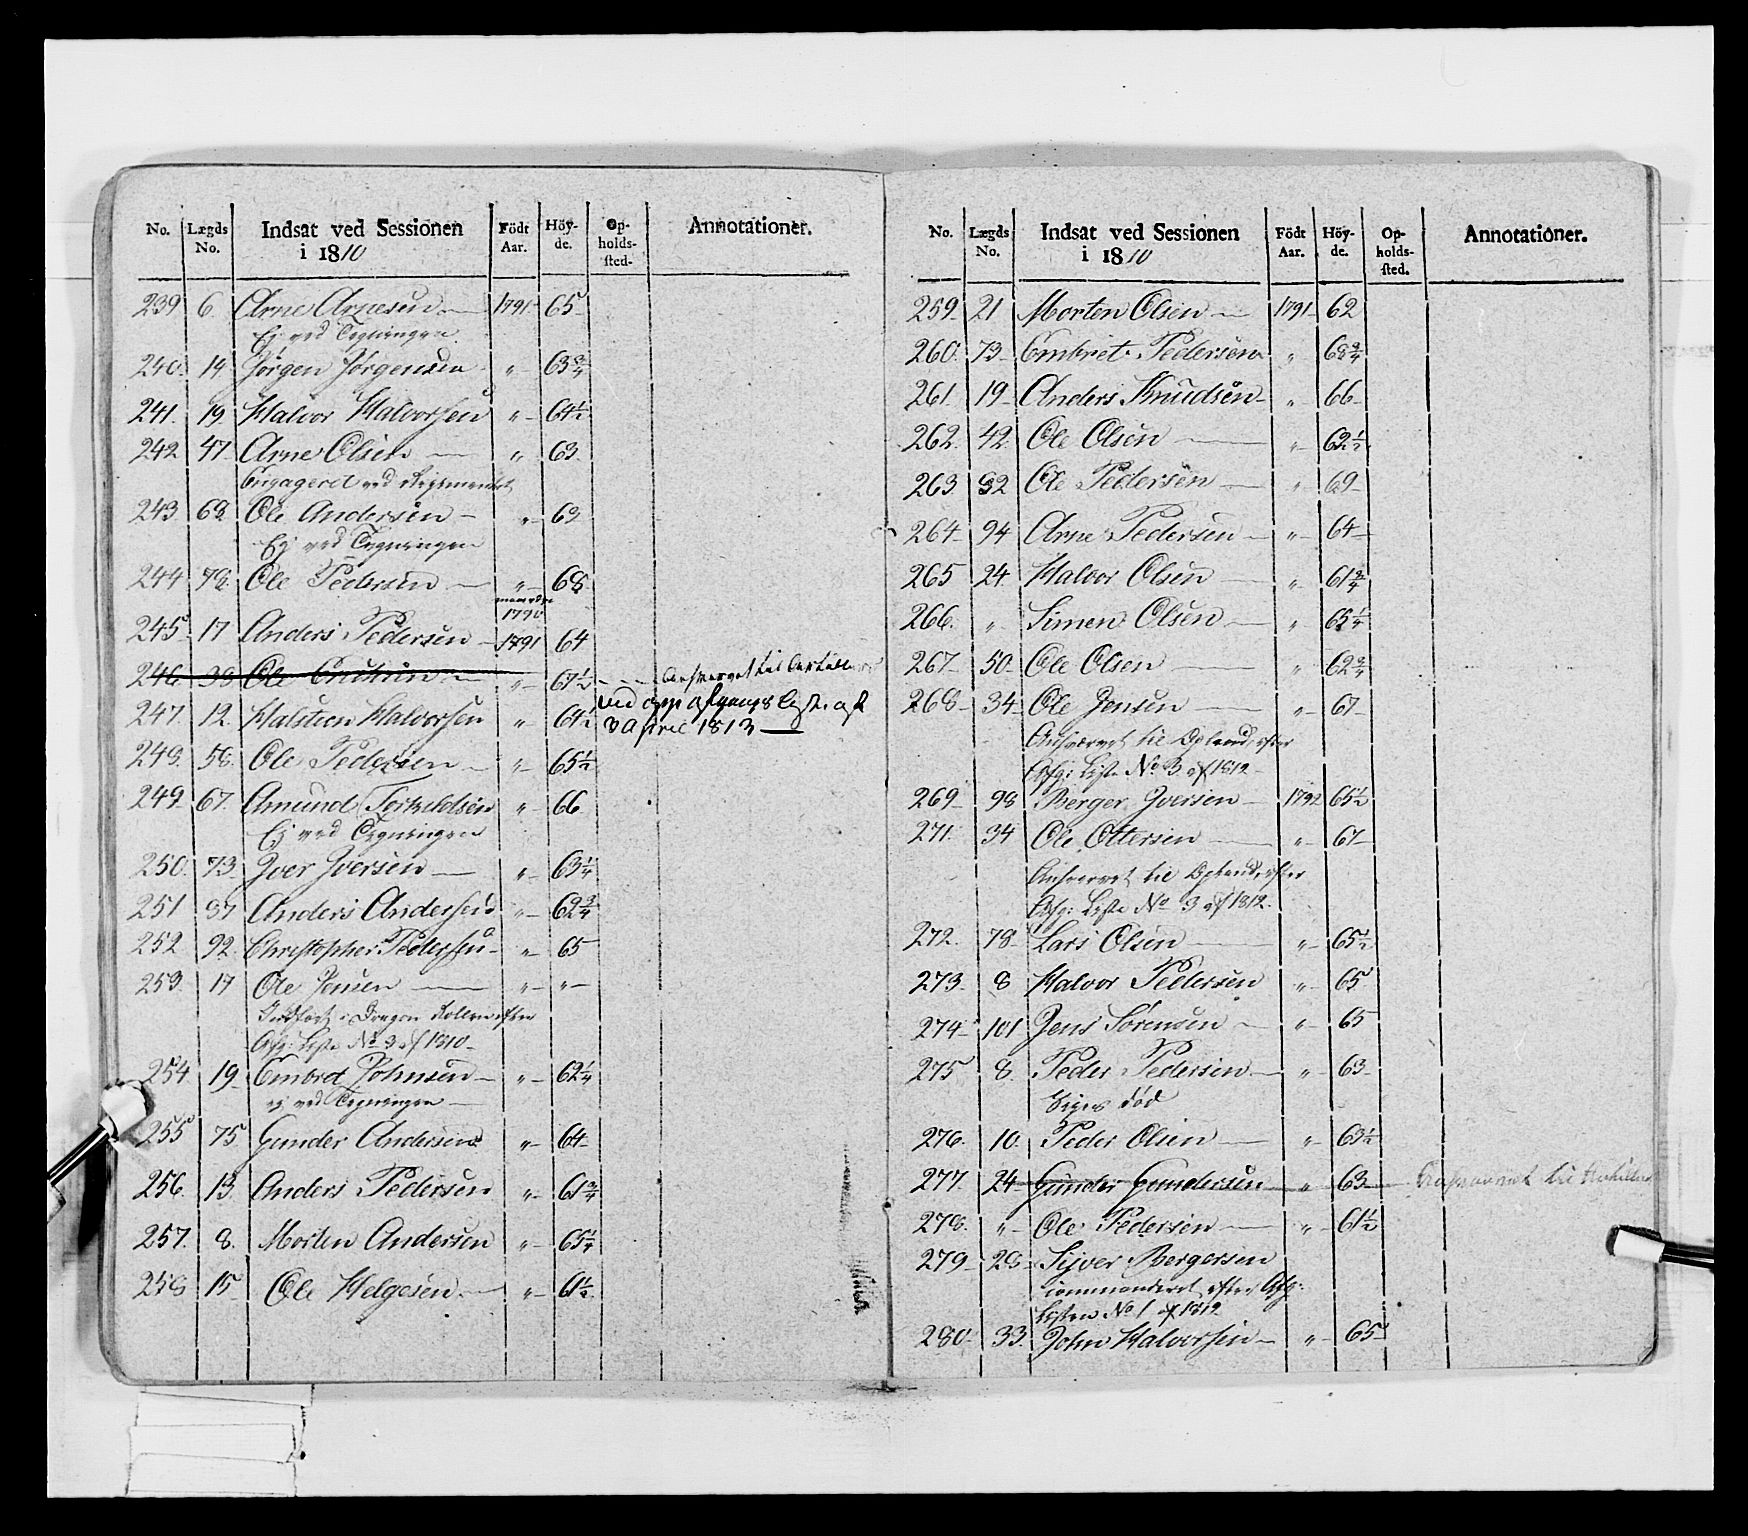 No. Lægds No. Indsat ved Sessionen i 1810 Födt Aar. Höy-de. Op-holds-sted. Annotationer.
239 6. Arne Arnesen 1791 65
Ej ved Tegningen.
240. 14 Jørgen Jørgensen " 63 3/4
241. 19. Halvor Halvorsen " 64 1/2
242 47. Arne Olsen " 63.
Engagerd ved Regementet
243 69. Ole Andersen " 62
Ej ved Tegningen
244 78. Ole Pedersen " 68
1790
245. 17 Anders Pedersen 1791 64
246 38 Ole " 67 1/2
247. 12. Halsteen Halvorsen " 64 1/2
3 April 1813
248. 58. Ole Pedersen " 65 1/2
249. 67. Amund Torkildsen " 66
Ej ved Tegningen
250. 73. Iver Iversen " 63 1/4
251 37 Anders Andersen " 62 3/4
252 92. Christopher Pedersen " 65
253. 17 Ole Jensen " "
Indført i Dragon Rollen efter
Afg: Liste No 3 af 1810
254 19 Embret Johnsen " 62 1/4
ej ved Tegningen
255 75 Gunder Andersen " 64
256. 13. Anders Pedersen " 61 3/4
257. 8. Morten Andersen " 65 1/4
258 15 Ole Helgesen " 61 1/2
No. Lægds No. Indsat ved Sessionen i 1810 Födt Aar. Höy-de. Op-holds-sted. Annotationer.
259. 21 Morten Olsen 1791 62
260. 73 Embret Pedersen " 68 3/4
261. 19 Anders Knudsen " 66
262. 42. Ole Olsen " 62 1/2
263. 92 Ole Pedersen " 69
264 94 Arne Pedersen " 64
265 24. Halvor Olsen " 61 3/4
266. " Simen Olsen " 65 1/4
267 50 Ole Olsen " 62 3/4
268 34 Ole Jensen " 67
til Opland. efter
Afg: Liste No 3 af 1812
269 98 Berger Iversen 1792 65 1/2
271. 34 Ole Ottersen " 67
til Opland. efter
Afg: Liste No 3 af 1812.
272. 78 Lars Olsen " 65 1/2
273. 8 Halvor Pedersen " 65
274 101 Jens Sørensen " 65
275 8. Peder Pedersen " 63
Siges død
276. 10. Peder Olsen " 63 1/2
277. 24 Gunder Gundersen " 63
278. " Ole Pedersen " 61 1/2
279 28 Sijver Bergersen
commanderet efter Afg:
Listen No 1 af 1812
280. 33. John Halvorsen " 65